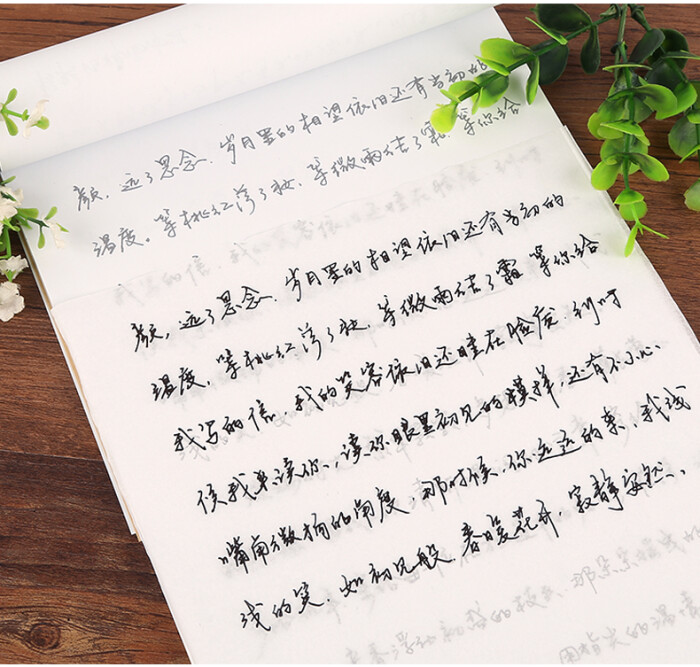 颜，远了思念，岁月里的相望依旧还有当初的
温度，等桃红落了妆，等微雨结了霜 等你给
颜，远了思念，岁月里的相望依旧还有当初的
温度，等桃红落了妆，等微雨结了霜 等你给
我写的信，我的笑容依旧还挂在脸庞 到时
候我单读你，读你眼里初见的模样，还有不小心
嘴角微扬的角度，那时候，你远远的来，我浅
浅的笑，如初见般，春暖花开，寂静安然、